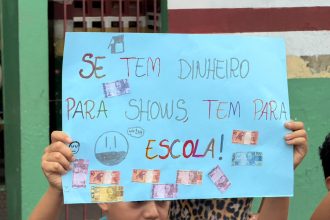 SE TEM DINHEIRO
PARA SHOWS, TEM PARA
ESCOLA!